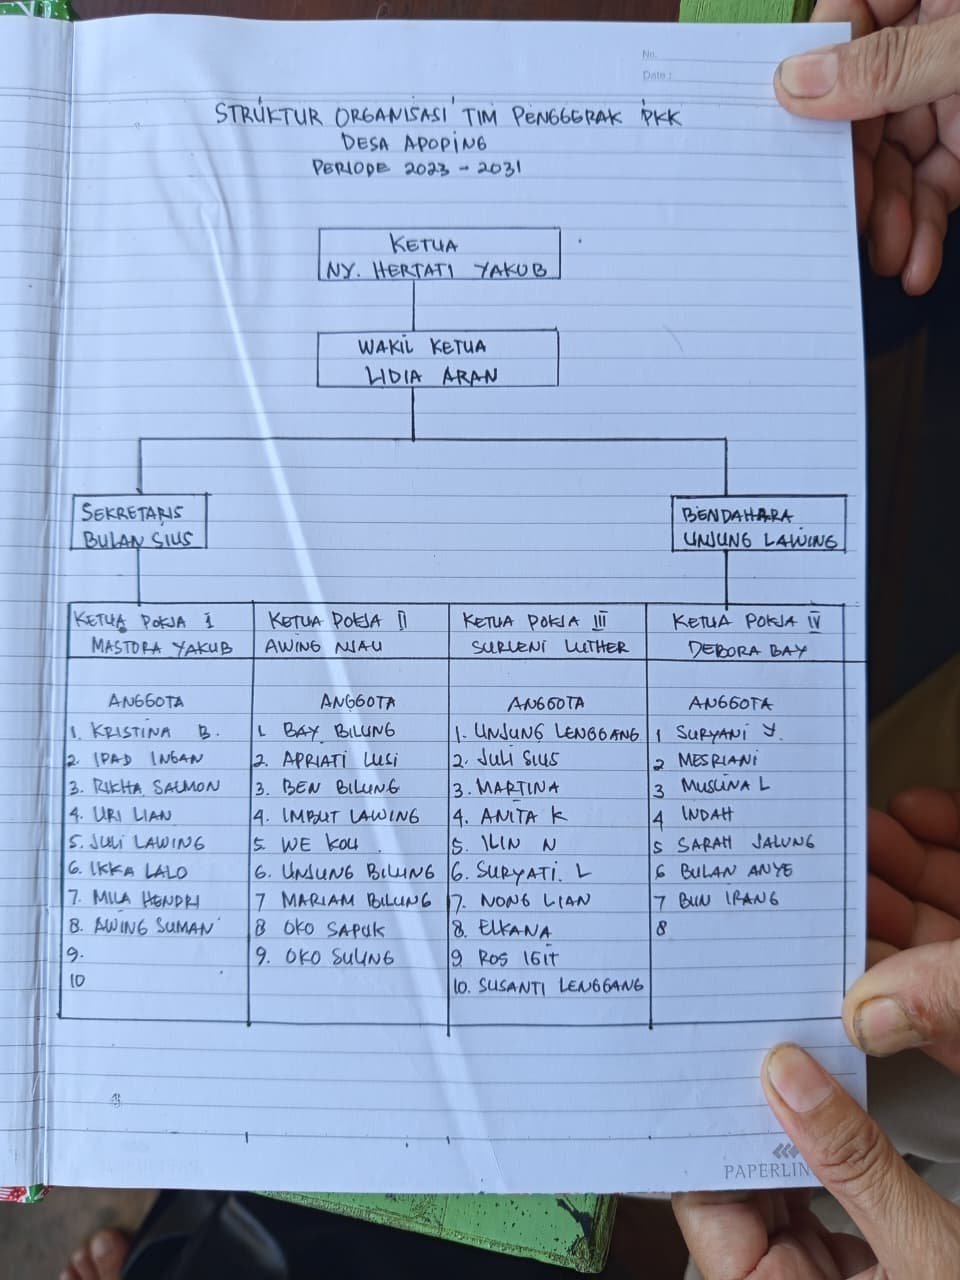 No.
Date :
STRUKTUR ORGANISASI TIM PENGGERAK PKK
DESA APOPING
PERIODE 2023 - 2031
KETUA
NY. HERTATI YAKUB
WAKIL KETUA
LIDIA ARAN
SEKRETARIS
BULAN SIUS
BENDAHARA
UNJUNG LAWING
KETUA POKJA I
MASTORA YAKUB
ANGGOTA
1. KRISTINA B.
2. IPAD INGAN
3. RIKHA SALMON
4. URI LIAN
5. JULI LAWING
6. IKKA LALO
7. MILA HENDRI
8. AWING SUMAN
9.
10
KETUA POKJA II
AWING NJAU
ANGGOTA
1. BAY BILUNG
2. APRIATI LUSI
3. BEN BILUNG
4. IMBUT LAWING
5. WE KOU
6. UNJUNG BILUNG
7 MARIAM BILUNG
8 OKO SAPUK
9. OKO SULING
KETUA POKJA III
SURLENI LUTHER
ANGGOTA
1. UNJUNG LENGGANG
2. JULI SIUS
3. MARTINA
4. ANITA K
5. ILIN N
6. SURYATI. L
7. NONG LIAN
8. ELKANA
9 ROS IGIT
10. SUSANTI LENGGANG
KETUA POKJA IV
DEBORA BAY
ANGGOTA
1 SURYANI Y.
2 MESRIANI
3 MUSLINA L
4 INDAH
5 SARAH JALUNG
6 BULAN ANYE
7 BUN IRANG
8
PAPERLIN